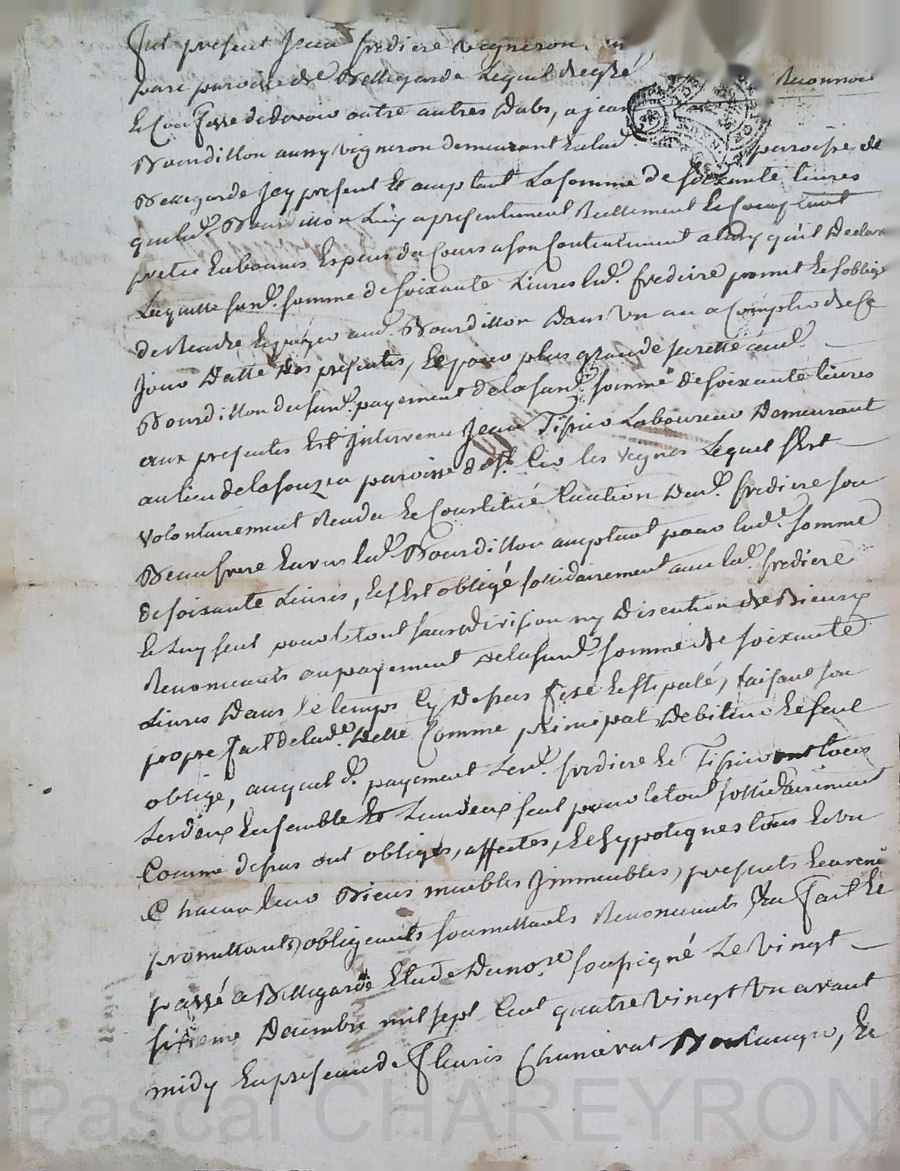 fut présent Jean fredière vigneron
parc paroisse de Bellegarde Lequel de gré Reconnoit
Et Confesse de devoir entre autres dubs, a jean
Bourdillon aussy vigneron demeurant paroisse de
Bellegarde Icy présent Et acceptant La somme de soixante livres
que led. Bourdillon Luy a présentement Reellement Et Comptant
prété En bonnes Espèces du Cours a son Contentement a qu'il Declare
Laquelle susd. somme de soixante Livres led. fredière promet Et s'oblige
de Rendre Et payer aud. Bourdillon Dans Un an a Compter de Ce
Jour Datte Des présentes, Et pour plus grande surette aud.
Bourdillon du susd. payement de la susd. somme de soixante livres
aux présentes Est Intervenu Jean Tissier Laboureur Demeurant
au lieu de la fouzea paroisse de St. Cir les vignes Lequel s'Est
volontairement Rendu Et Constitué Caution Dud. fredière son
Beaufrere Envers led. Bourdillon acceptant pour lad. somme
de soixante Livres, Et s'Est obligé sollidairement avec led. fredière
Et Luy seul pour le tout sans division ny Discution de Biens
Renonceants au payement De la susd. somme de soixante
Livres Dans le temps Cy Dessus fixé Et stipulé, faisant son
propre fait de lad. Dette Comme principal Debiteur Et seul
obligé, auquel d. payement Lesd. fredière Et Tissier ont tous
Les deux Ensemble Et L'un d'eux seul pour le tout sollidairement
Comme dessus ont obligés, affectés, Et hypotiqués tous Et un
Chacun leur Biens meubles Immeubles, présents Et avenir
promettants, obligeants soumettants Renonceants fait Et
passé a Bellegarde Etude Du nore. soussigné Le vingt
sixieme Décembre mil sept Cent quatre vingt Un avant
midy En présence de fleuris Chanavat Boulanger, Et
Pascal CHAREYRON